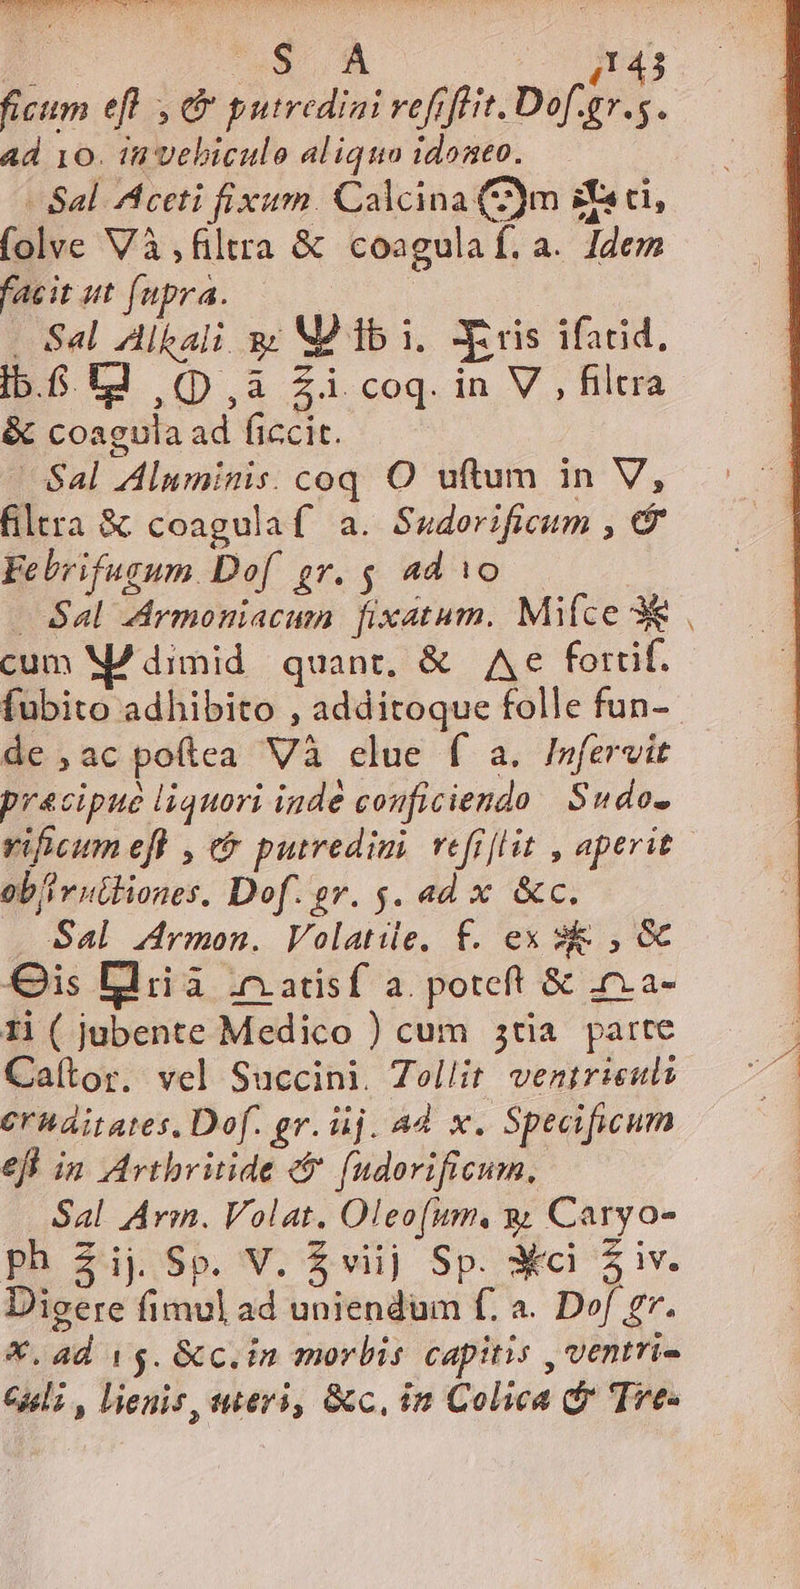 S A 143
ficum eſt , & putredini reſiſtit. Doſ.gr.5.
ad 10. in vehiculo aliquo idoneo.
Sal Aceti fixum. Calcina m ti,
ſolve 🜄à, filtra & coagula ſ. a. Idem
facit ut ſupra.
Sal Alkali ℞ 🜿 ℔ i. ris iſatid.
℔.ß , 🜕 , ā ℥i coq. in 🜄 , filtra
& coagula ad ſiccit.
Sal Aluminis. coq O uſtum in 🜄,
filtra & coagula ſ a. Sudorificum , &
Febrifugum Doſ gr. 5 ad 10
Sal Armoniacum fixatum. Miſce 🜹
cum 🜿 dimid quant. & 🜂e fortiſ.
ſubito adhibito , additoque folle fun-
de , ac poſtea 🜄à elue ſ a. Inſervit
præcipuè liquori indè conficiendo Sudo-
rificum eſt , & putredini reſiſtit , aperit
obſtructiones. Doſ. gr. 5. ad x &c.
Sal Armon. Volatile. f. ex 🜹 , &
🜔is riā atiſ ſ a. poteſt & a-
ri ( jubente Medico ) cum 3tia parte
Caſtor. vel Succini. Tollit ventriculi
cruditates. Doſ. gr. iij. ad x. Specificum
eſt in Arthritide & ſudorificum.
Sal Arm. Volat. Oleoſum. ℞ Caryo-
ph ℥ ij. Sp. V. ℥ viij Sp. 🜹ci ℥ iv.
Digere ſimul ad uniendum ſ. a. Doſ gr.
x. ad 15. &c. in morbis capitis , ventri-
culi , lienis, uteri, &c. in Colica & Tre-